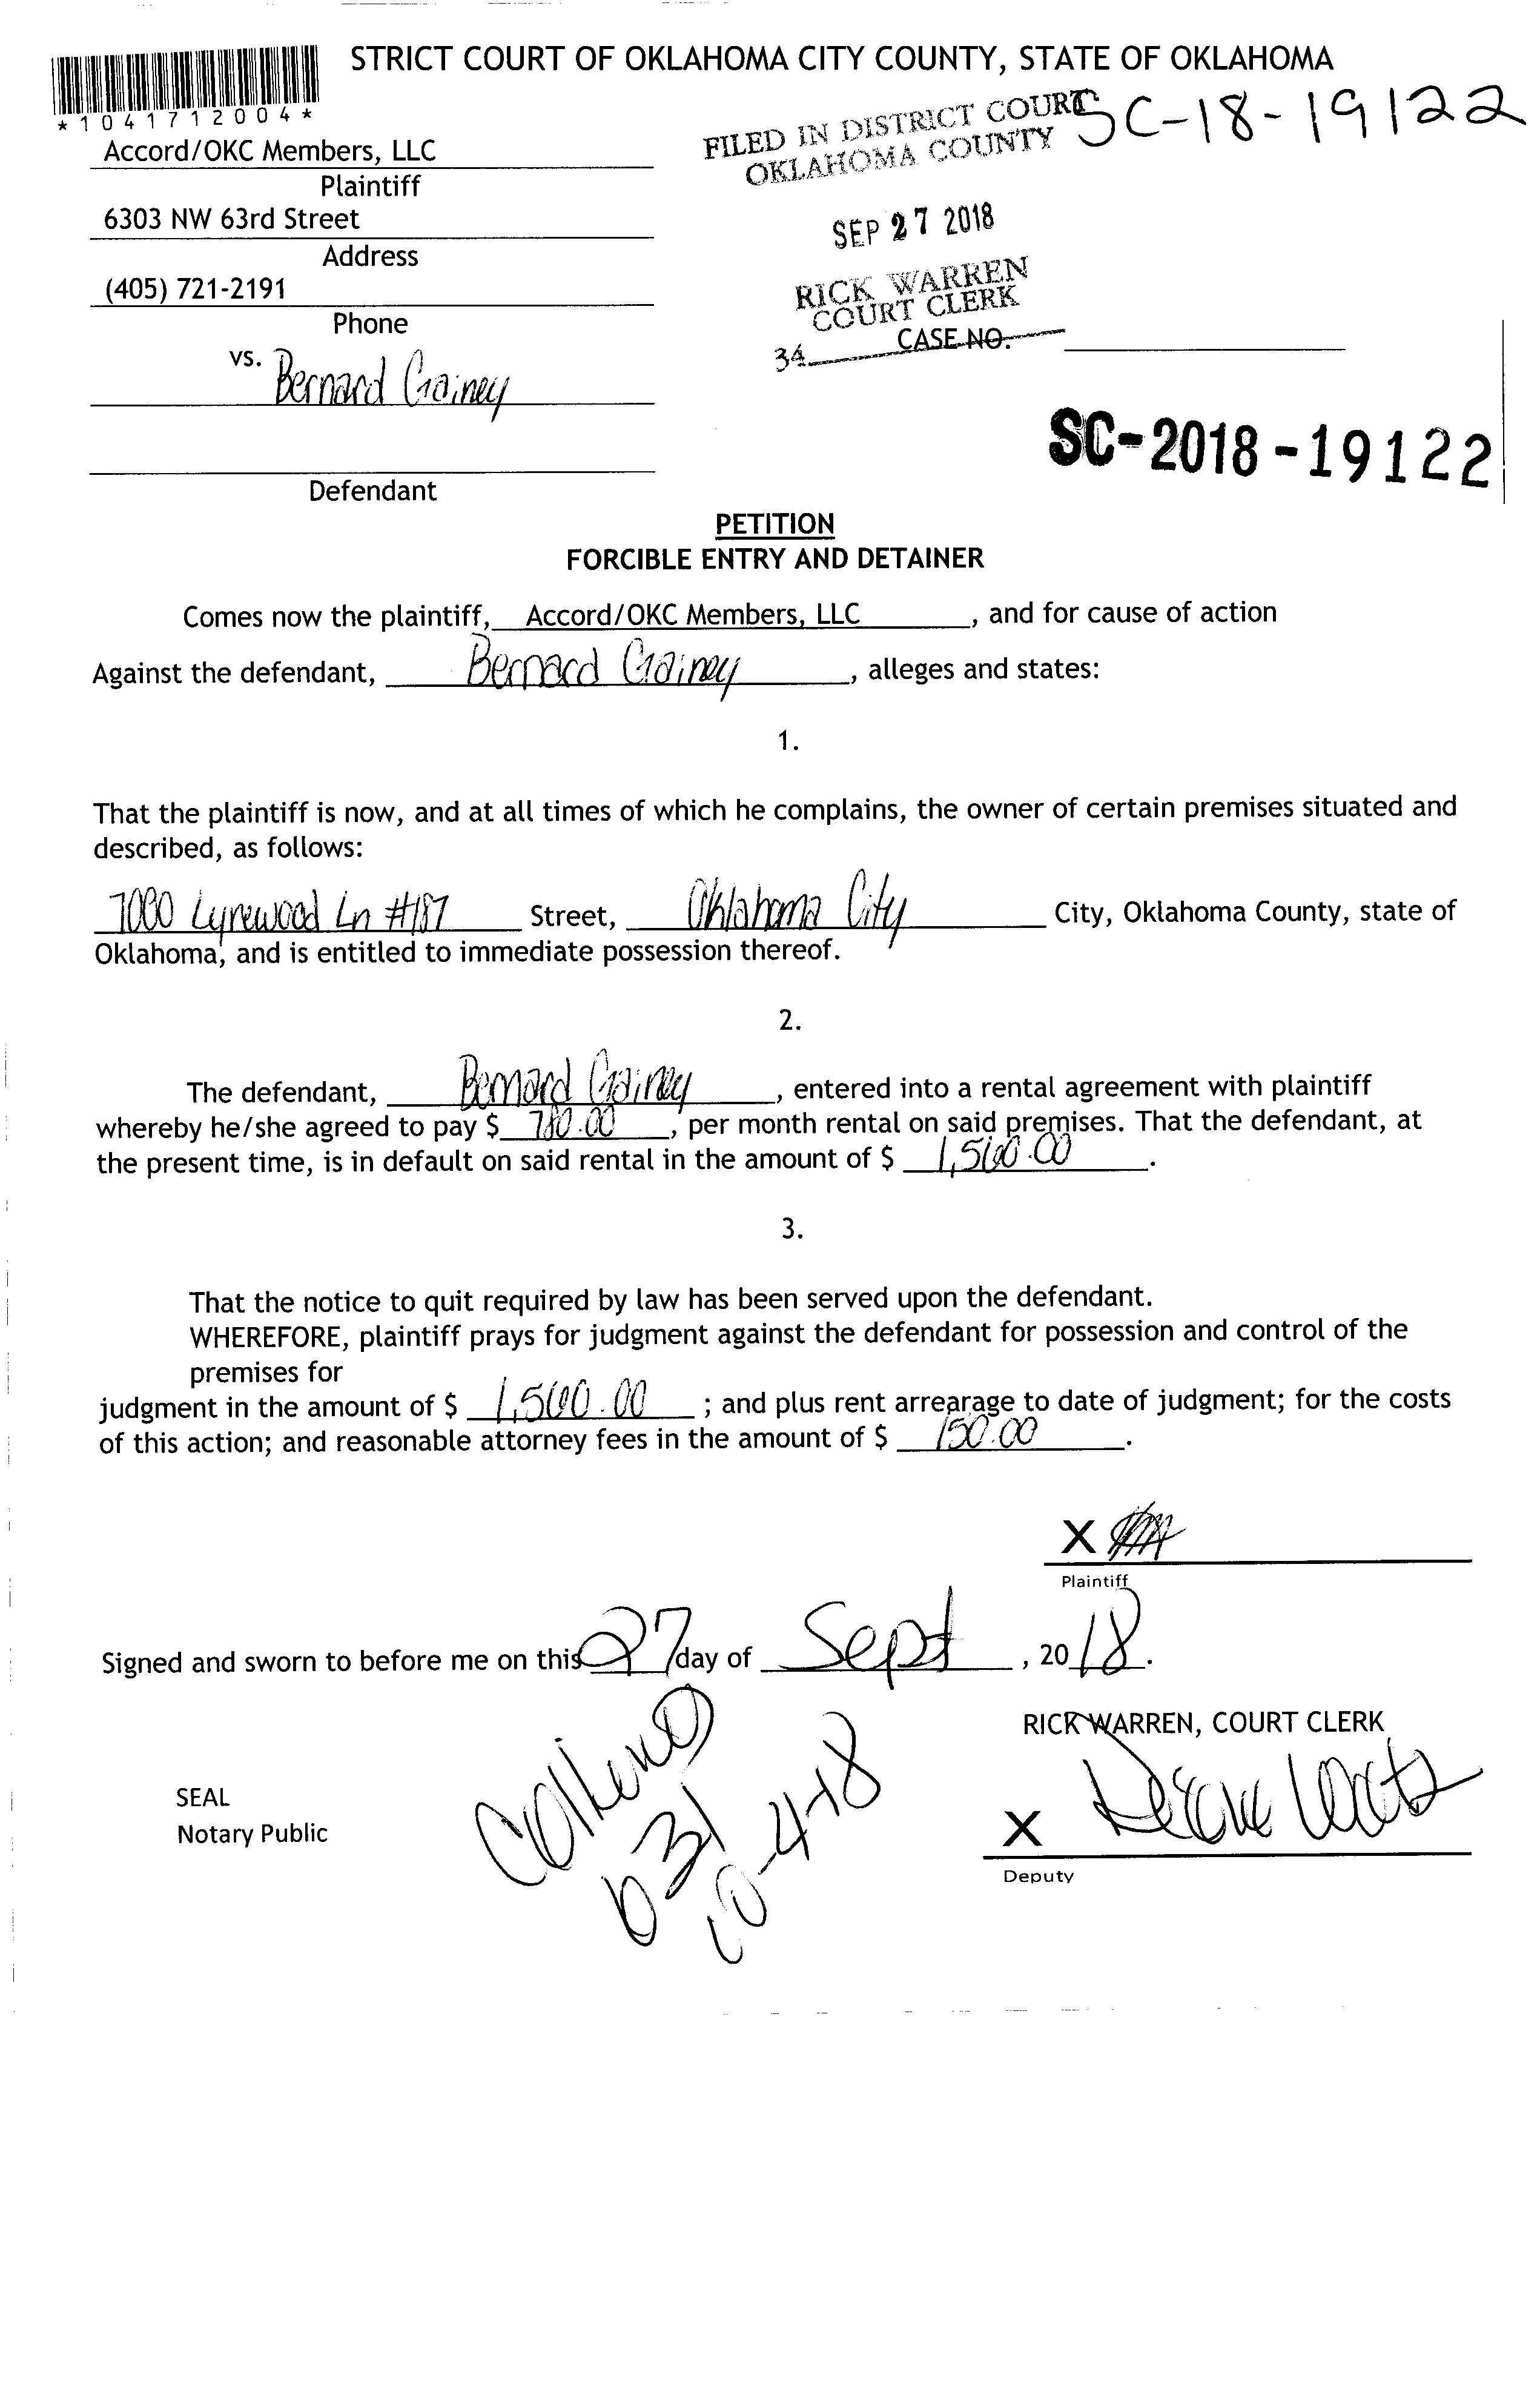 STRICT COURT OF OKLAHOMA CITY COUNTY, STATE OF OKLAHOMA
*1041712004*
FILED IN DISTRICT COURT
OKLAHOMA COUNTY
SC-18-19122
Accord/OKC Members, LLC
Plaintiff
6303 NW 63rd Street
Address
(405) 721-2191
Phone
SEP 27 2018
RICK WARREN
COURT CLERK
34
CASE NO.
vs. Bernard Gainey
Defendant
SC-2018-19122
PETITION
FORCIBLE ENTRY AND DETAINER
Comes now the plaintiff, Accord/OKC Members, LLC, and for cause of action
Against the defendant, Bernard Gainey, alleges and states:
1.
That the plaintiff is now, and at all times of which he complains, the owner of certain premises situated and
described, as follows:
7000 Lyrewood Ln #187 Street, Oklahoma City City, Oklahoma County, state of
Oklahoma, and is entitled to immediate possession thereof.
2.
The defendant, Bernard Gainey, entered into a rental agreement with plaintiff
whereby he/she agreed to pay $ 780.00, per month rental on said premises. That the defendant, at
the present time, is in default on said rental in the amount of $ 1,560.00.
3.
That the notice to quit required by law has been served upon the defendant.
WHEREFORE, plaintiff prays for judgment against the defendant for possession and control of the
premises for
judgment in the amount of $ 1,560.00 ; and plus rent arrearage to date of judgment; for the costs
of this action; and reasonable attorney fees in the amount of $ 150.00.
X
Plaintiff
Signed and sworn to before me on this 27 day of Sept, 2018.
RICK WARREN, COURT CLERK
SEAL
Notary Public
631
10-4-18
X
Deputy